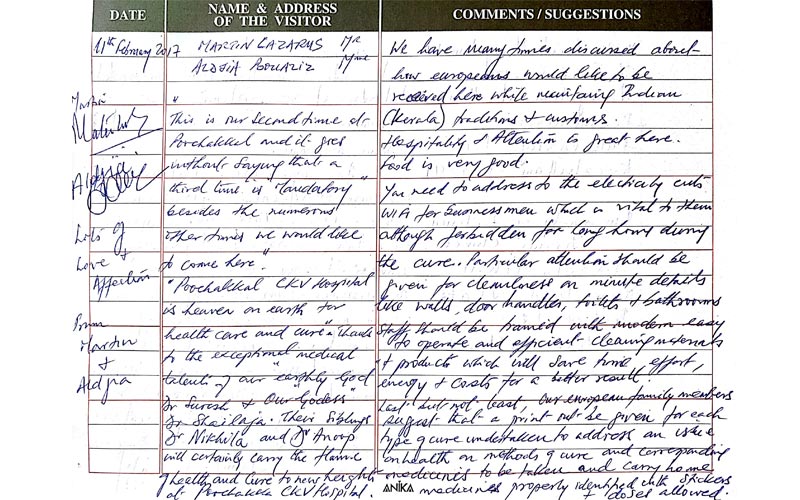 DATE
NAME & ADDRESS
OF THE VISITOR
COMMENTS / SUGGESTIONS
11th February 2017
MARTIN LAZARUS Mr
ALDJIA BOUAZIZ Mme
"This is our second time at
Poochakkal and it goes
without saying that a
third time is "mandatory"
besides the numerous
other times we would like
to come here".
"Poochakkal CKV Hospital
is heaven on earth for
health care and cure" thanks
to the exceptional medical
talents of our "earthly God
Dr Suresh & Our "Godess"
Dr Shailaja. Their Siblings
Dr Nikhila and Dr Anoop
will certainly carry the flame
of health and Cure to new heights
at Poochakkal CKV Hospital.
Lots of
Love &
Affection
From
Martin
&
Aldjia
We have many times discussed about
how europeans would like to be
received here while maintaining Indian
(Kerala) traditions & customs.
Hospitality & Attention is great here.
Food is very good.
You need to address to the electricity cuts
WiFi for businessmen which is vital to them
although forbidden for long hours during
the cure. Particular attention should be
given for cleanliness on minute details
like walls, door handles, toilets & bathrooms
Staff should be trained with modern easy
to operate and efficient cleaning materials
& products which will save time, effort,
energy & costs for a better result.
Last but not least, our european family members
suggest that a print out be given for each
type of cure undertaken to address an issue
on health on methods of cure and corresponding
medicines to be taken and carry home
medicines properly identified with stickers
& doses allowed.
ANIKA